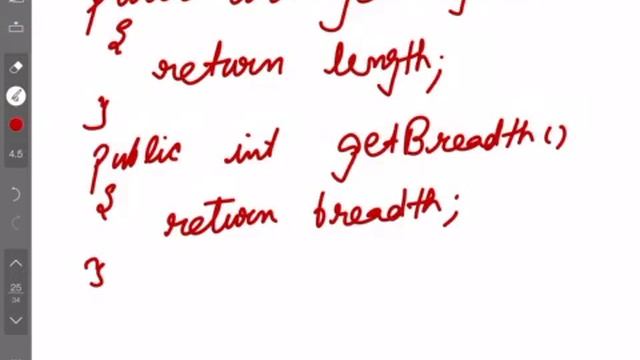 {
return length;
}
public int getBreadth()
{
return breadth;
}
4.5
25
34